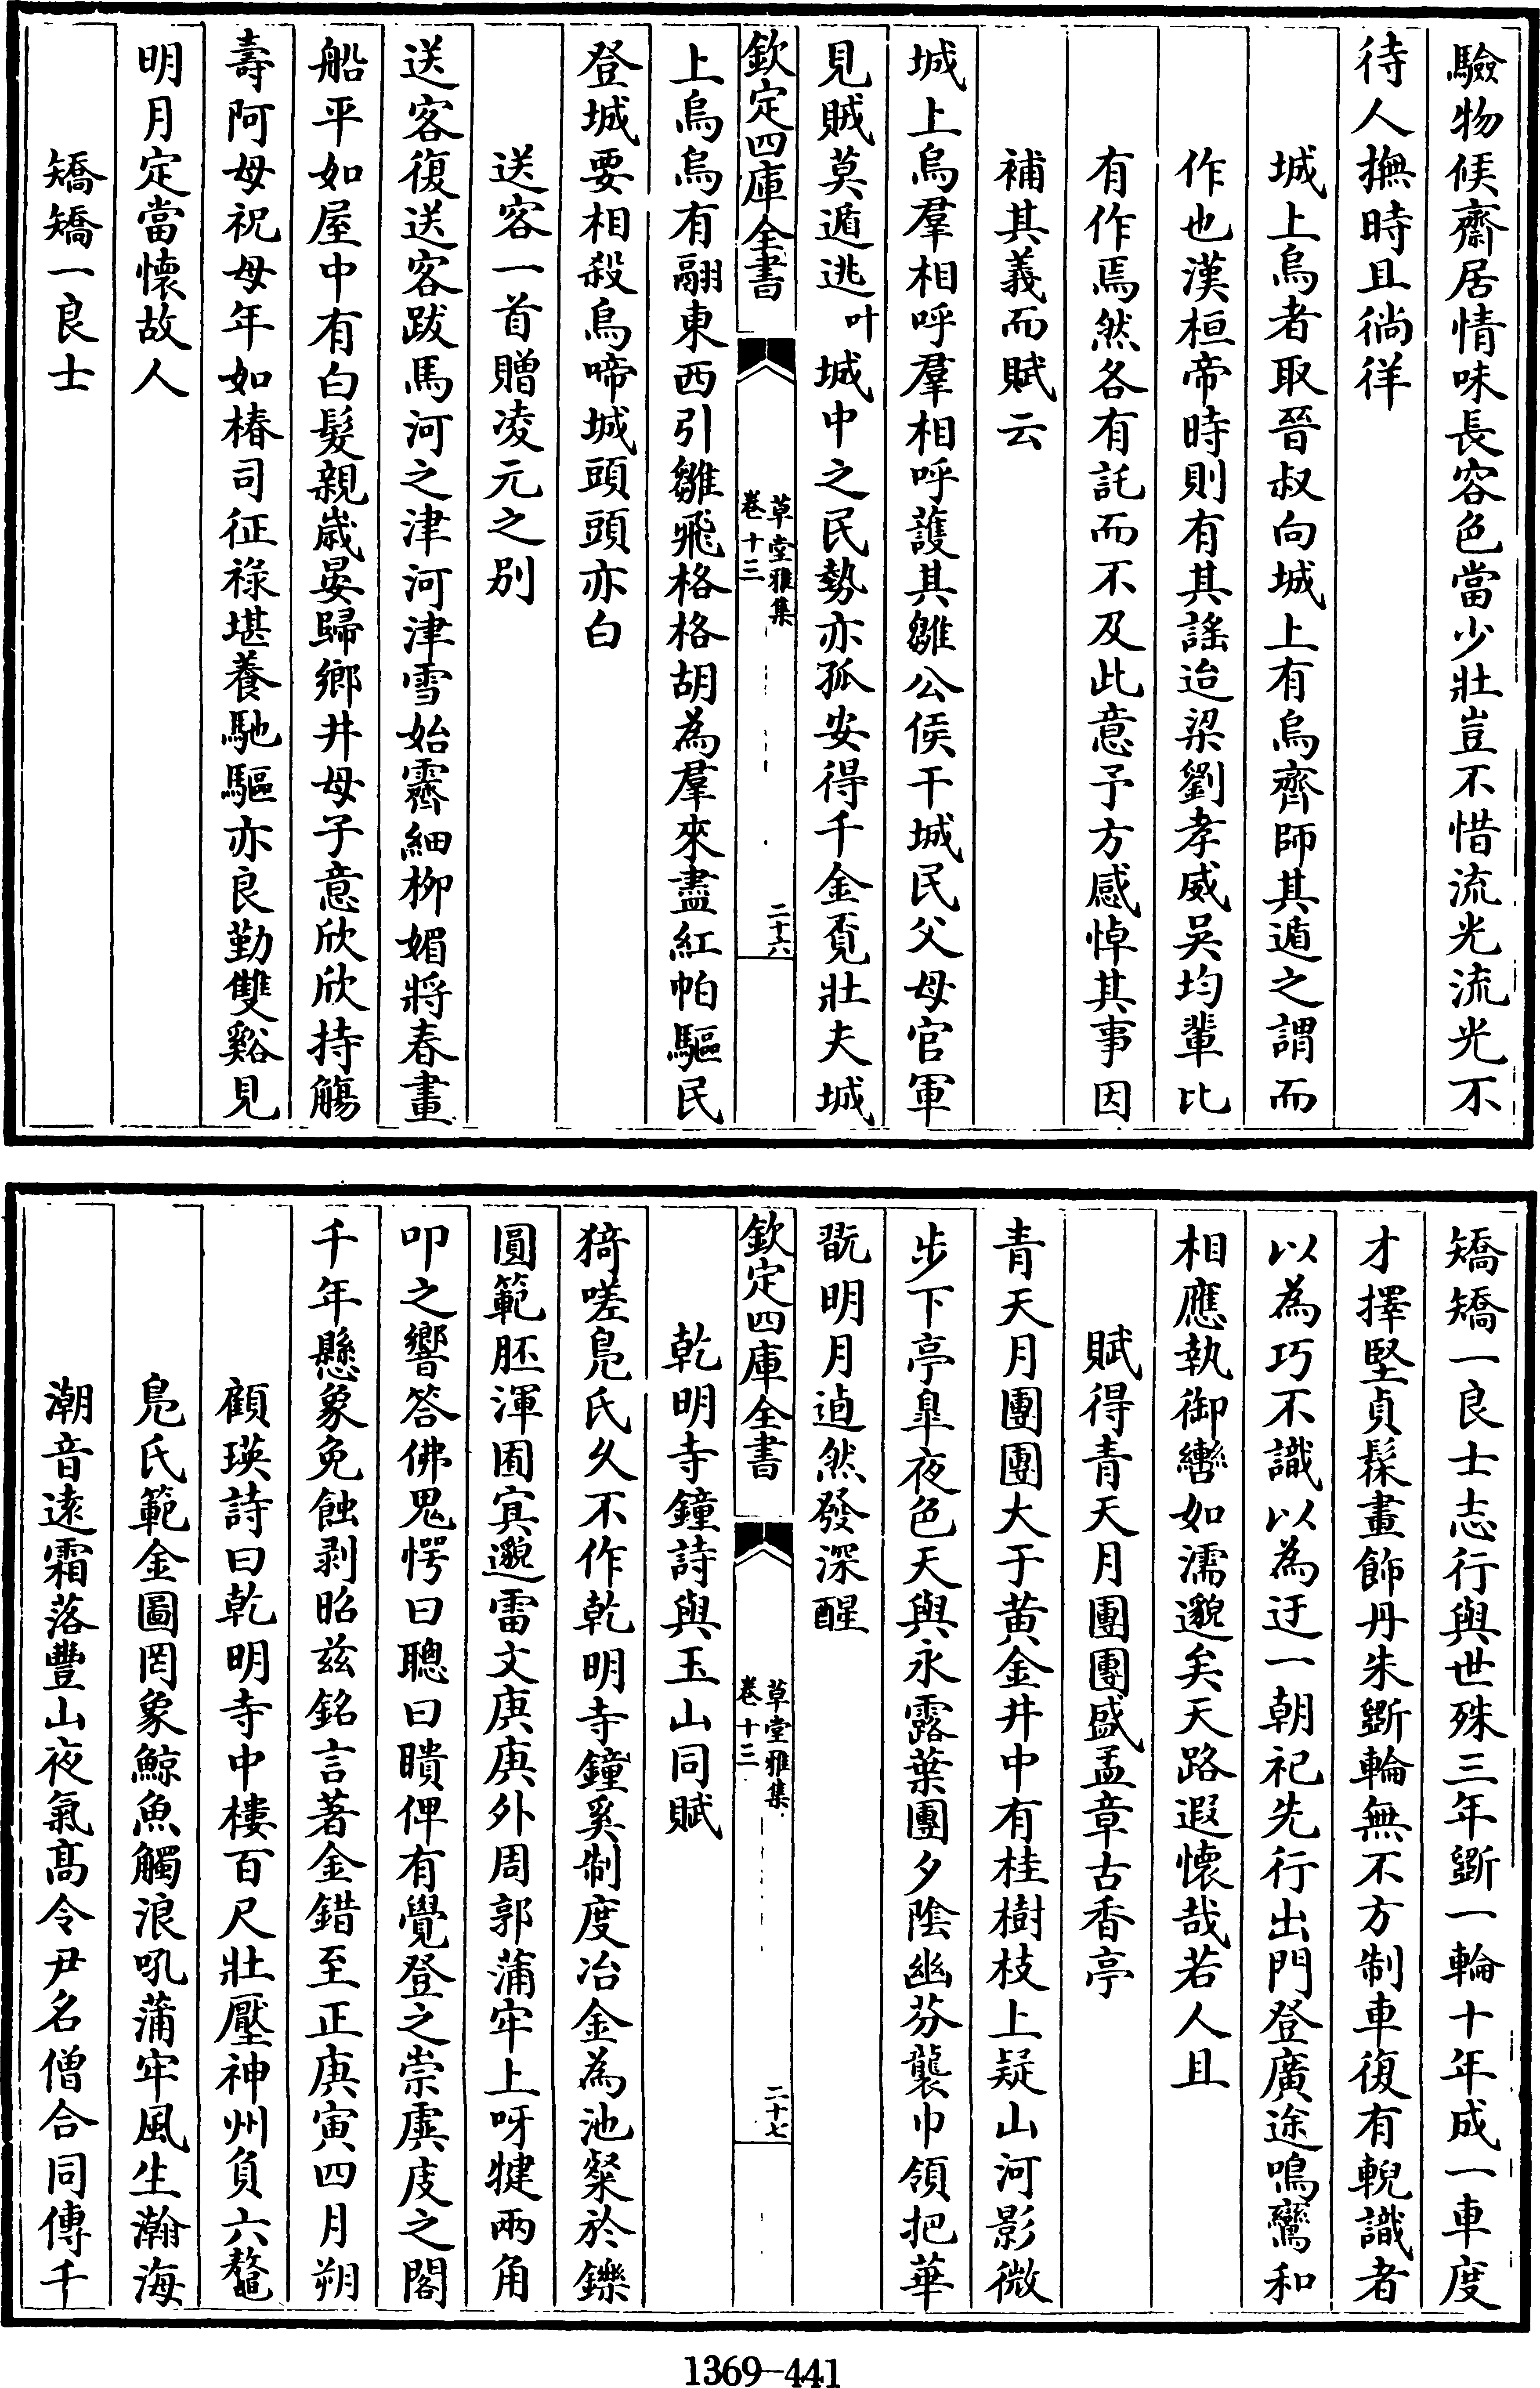 驗物候齋居情味長容色當少壯豈不惜流光流光不
待人撫時且徜徉
城上烏者取晉叔向城上有烏齊師其遁之謂而
作也漢桓帝時則有其謡迨梁劉孝威吳均輩比
有作焉然各有託而不及此意予方感悼其事因
補其義而賦云
城上烏羣相呼羣相呼護其雛公侯干城民父母官軍
見賊莫遁逃叶城中之民勢亦孤安得千金覔壯夫城
欽定四庫全書
草堂雅集
卷十三
二十六
上烏烏有翮東西引雛飛格格胡為羣來盡紅帕驅民
登城要相殺烏啼城頭頭亦白
送客一首贈凌元之别
送客復送客跋馬河之津河津雪始霽細柳媚將春畫
船平如屋中有白髮親歲晏歸鄉井母子意欣欣持觴
壽阿母祝母年如椿司征祿堪養馳驅亦良勤雙谿見
明月定當懷故人
矯矯一良士
矯矯一良士志行與世殊三年斵一輪十年成一車度
才擇堅貞髹畫飾丹朱斵輪無不方制車復有輗識者
以為巧不識以為迂一朝祀先行出門登廣途鳴鸞和
相應執御轡如濡邈矣天路遐懷哉若人且
賦得青天月團團盛孟章古香亭
青天月團團大于黄金井中有桂樹枝上疑山河影微
步下亭臯夜色天與永露葉團夕陰幽芬襲巾領把華
翫明月逌然發深醒
欽定四庫全書
草堂雅集
卷十三
二十七
乾明寺鐘詩與玉山同賦
猗嗟鳧氏久不作乾明寺鐘奚制度冶金為池粲於鑠
圓範胚渾囿寘邈雷文庚庚外周郭蒲牢上呀犍兩角
叩之響答佛鬼愕曰聰曰聵俾有覺登之崇虡庋之閣
千年懸象免蝕剥昭兹銘言著金錯至正庚寅四月朔
顧瑛詩曰乾明寺中樓百尺壯壓神州負六鼇
鳧氏範金圖罔象鯨魚觸浪吼蒲牢風生瀚海
潮音遠霜落豐山夜氣髙令尹名僧合同傳千
1369-441